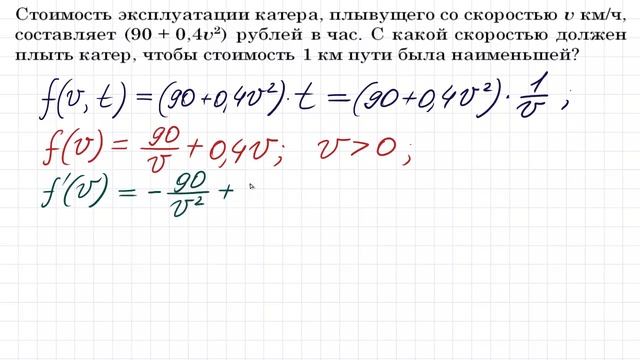 Стоимость эксплуатации катера, плывущего со скоростью v км/ч,
составляет (90 + 0,4v²) рублей в час. С какой скоростью должен
плыть катер, чтобы стоимость 1 км пути была наименьшей?
f(v, t) = (90+0,4v²)·t = (90+0,4v²)·1/v ;
f(v) = 90/v + 0,4v; v>0 ;
f'(v) = -90/v² +